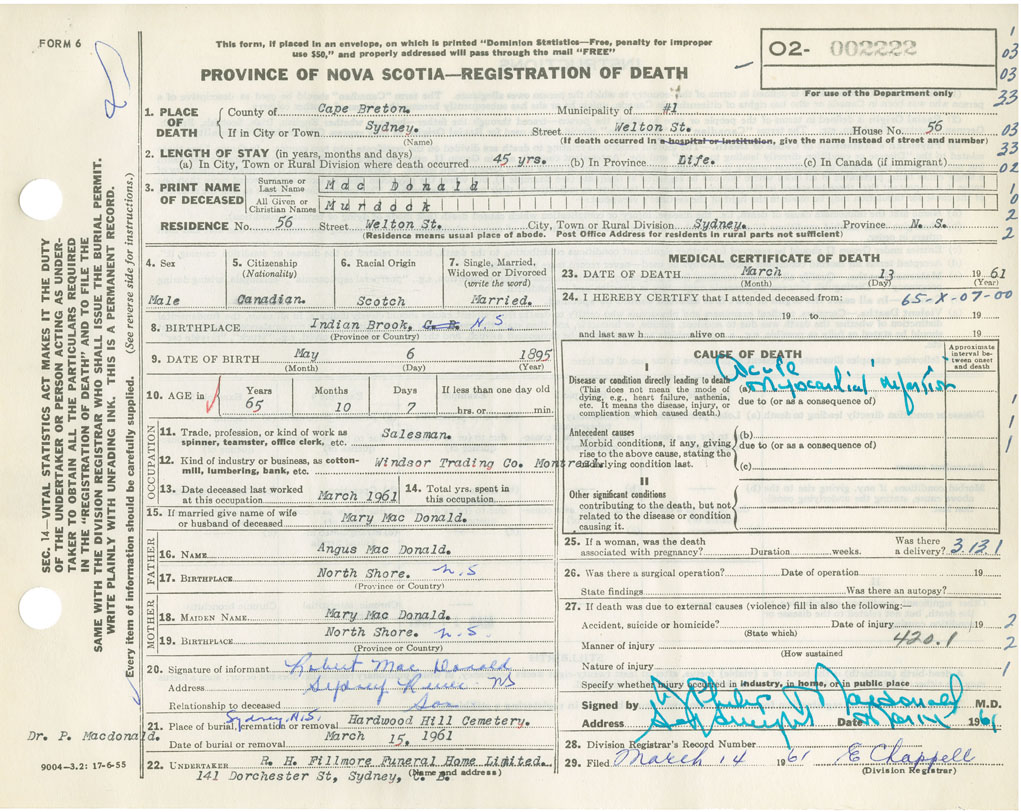 FORM 6
This form, if placed in an envelope, on which is printed "Dominion Statistics—Free, penalty for improper
use $50," and properly addressed will pass through the mail "FREE"
PROVINCE OF NOVA SCOTIA—REGISTRATION OF DEATH
O2- 002222
For use of the Department only
1. PLACE OF DEATH
County of Cape Breton. Municipality of #1
If in City or Town Sydney. Street Welton St. House No. 56
(Name) (If death occurred in a hospital or institution, give the name instead of street and number)
2. LENGTH OF STAY (in years, months and days)
(a) In City, Town or Rural Division where death occurred 45 yrs. (b) In Province Life. (c) In Canada (if immigrant)
3. PRINT NAME OF DECEASED
Surname or Last Name Mac Donald
All Given or Christian Names Murdock
RESIDENCE No. 56 Street Welton St. City, Town or Rural Division Sydney. Province N. S.
(Residence means usual place of abode. Post Office Address for residents in rural parts not sufficient)
4. Sex
Male
5. Citizenship (Nationality)
Canadian.
6. Racial Origin
Scotch
7. Single, Married, Widowed or Divorced (write the word)
Married.
8. BIRTHPLACE Indian Brook, C. B. N.S
(Province or Country)
9. DATE OF BIRTH May 6 1895
(Month) (Day) (Year)
10. AGE in
Years Months Days If less than one day old
65 10 7 hrs. or min.
OCCUPATION
11. Trade, profession, or kind of work as spinner, teamster, office clerk, etc. Salesman.
12. Kind of industry or business, as cotton-mill, lumbering, bank, etc. Windsor Trading Co. Montreal.
13. Date deceased last worked at this occupation March 1961
14. Total yrs. spent in this occupation.
15. If married give name of wife or husband of deceased Mary Mac Donald.
FATHER
16. NAME Angus Mac Donald.
17. BIRTHPLACE North Shore. N.S
(Province or Country)
MOTHER
18. MAIDEN NAME Mary Mac Donald.
19. BIRTHPLACE North Shore. N.S.
(Province or Country)
20. Signature of informant Robert Mac Donald
Address Sydney River NS
Relationship to deceased Son
Sydney, N.S.
21. Place of burial, cremation or removal Hardwood Hill Cemetery.
Date of burial or removal March 15, 1961
22. UNDERTAKER R. H. Fillmore Funeral Home Limited.
141 Dorchester St, Sydney, C. B.
(Name and address)
Dr. P. Macdonald.
9004—3.2: 17-6-55
MEDICAL CERTIFICATE OF DEATH
23. DATE OF DEATH March 13 1961
(Month) (Day) (Year)
24. I HEREBY CERTIFY that I attended deceased from: 65-X-07-00
19 to 19
and last saw h alive on 19
CAUSE OF DEATH
Approximate interval between onset and death
I
Disease or condition directly leading to death
(This does not mean the mode of dying, e.g., heart failure, asthenia, etc. It means the disease, injury, or complication which caused death.)
(a) Acute Myocardial Infarction
due to (or as a consequence of)
Antecedent causes
Morbid conditions, if any, giving rise to the above cause, stating the underlying condition last.
(b)
due to (or as a consequence of)
(c)
II
Other significant conditions
contributing to the death, but not related to the disease or condition causing it.
25. If a woman, was the death associated with pregnancy? Duration weeks. Was there a delivery? 3.13.1
26. Was there a surgical operation? Date of operation 19
State findings Was there an autopsy?
27. If death was due to external causes (violence) fill in also the following:—
Accident, suicide or homicide? Date of injury 19
(State which)
Manner of injury 420.1
(How sustained
Nature of injury
Specify whether injury occurred in industry, in home, or in public place
Signed by Philip Macdonald M.D.
Address Date 1961
28. Division Registrar's Record Number
29. Filed March 14 1961 E Chappell
(Division Registrar)
1
03
03
33
03
33
02
1
0
2
2
1
1
1
2
2
1
SEC. 14—VITAL STATISTICS ACT MAKES IT THE DUTY
OF THE UNDERTAKER OR PERSON ACTING AS UNDER-
TAKER TO OBTAIN ALL THE PARTICULARS REQUIRED
IN THE "REGISTRATION OF DEATH" AND TO FILE THE
SAME WITH THE DIVISION REGISTRAR WHO SHALL ISSUE THE BURIAL PERMIT.
WRITE PLAINLY WITH UNFADING INK. THIS IS A PERMANENT RECORD.
Every item of information should be carefully supplied. (See reverse side for instructions.)